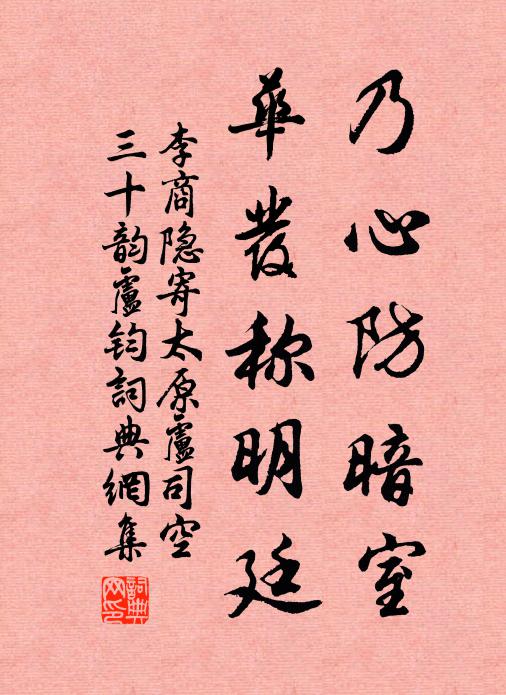 乃心防暗室
華发称明廷
李商隐寄太原盧司空
三十韵盧钧詞典網集
詞典网印